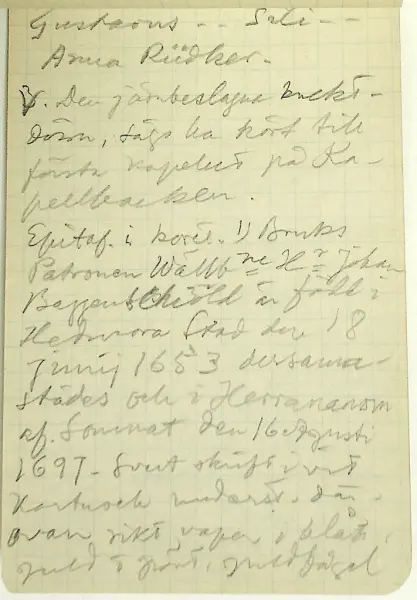 Gustavus - - Sili - -
Anna Rüdker.
3/. Den järnbeslagna
dörr, sägs ha hört till
första kapellet på Ka-
pellbacken.
Epitaf. i koret. 1) Bruks
Patronen Wällb ne H r Johan
Beppenschiöld är född i
Hedmora Stad den 18
junij 1653 dersama-
städes och i Herranom
af. Somnat den 16 Augusti
1697. Svart skrift i vit
kartusch underst. där-
ovan rikt vapen i blått,
guld o grönt,